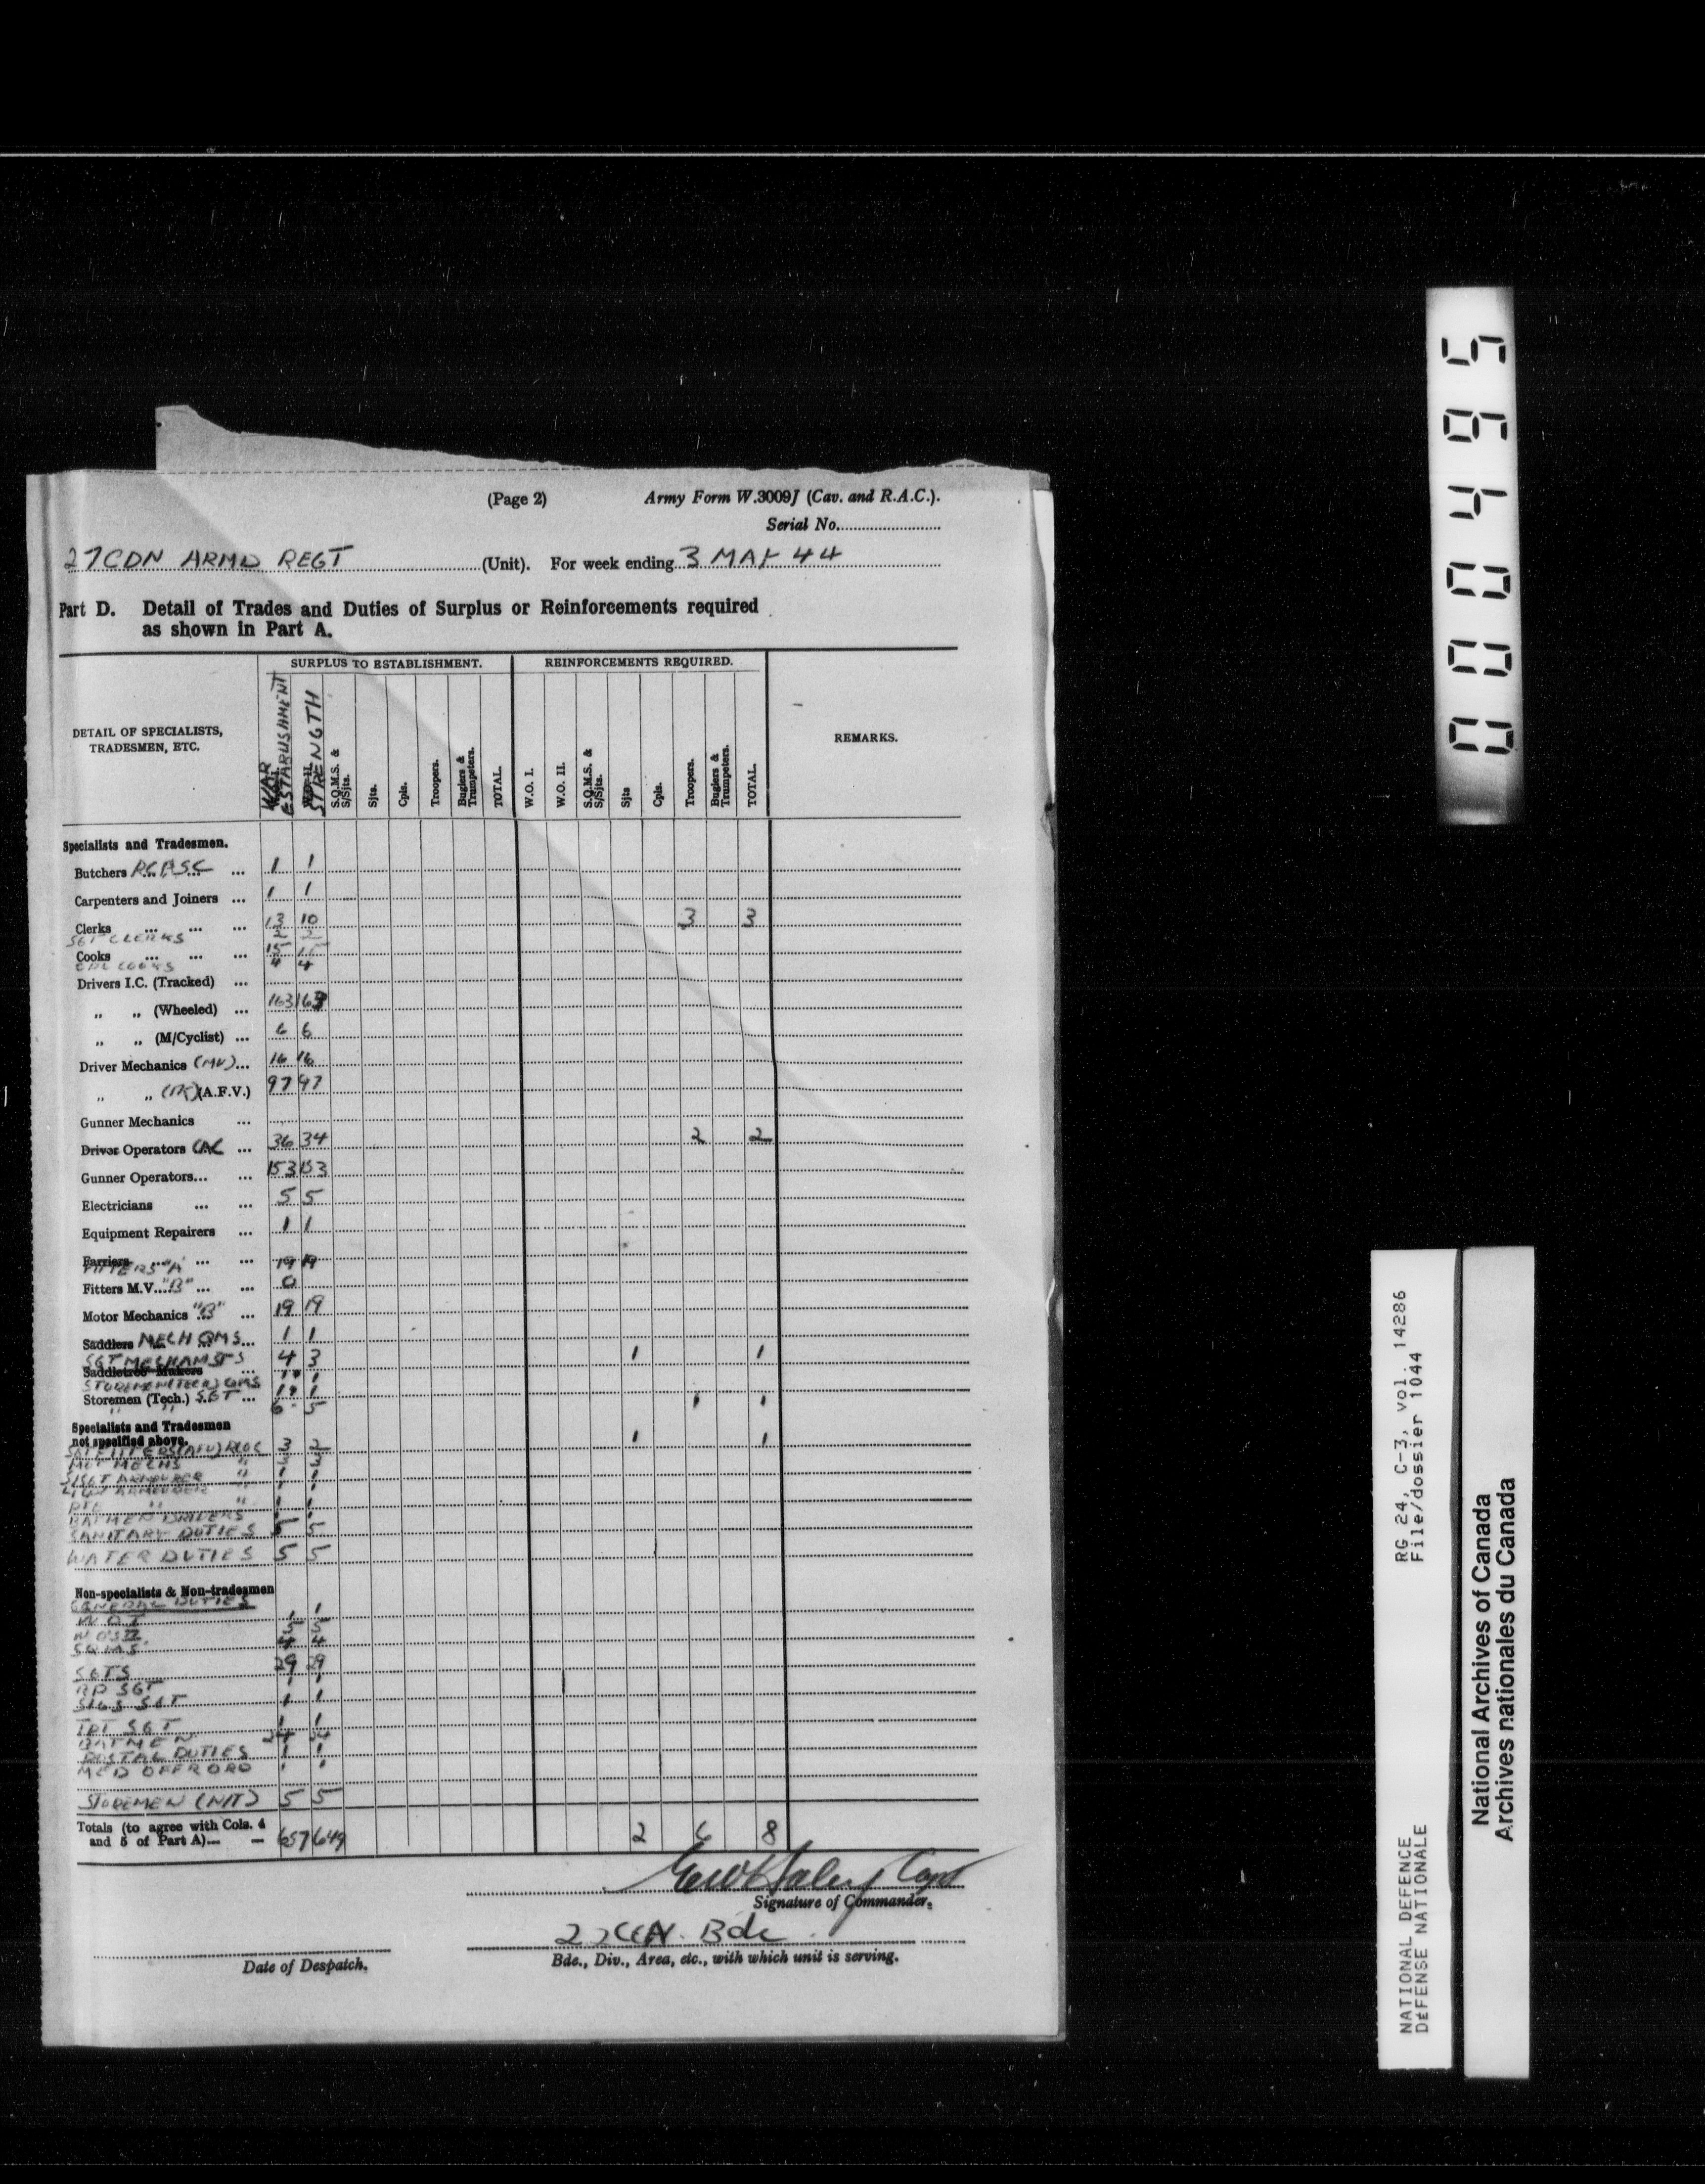 (Page 2) Army Form W.3009J (Cav. and R.A.C.).
Serial No.
27 CDN ARMD REGT (Unit). For week ending 3 MAY 44
Part D. Detail of Trades and Duties of Surplus or Reinforcements required
as shown in Part A.
SURPLUS TO ESTABLISHMENT. REINFORCEMENTS REQUIRED.
DETAIL OF SPECIALISTS,
TRADESMEN, ETC.
WAR ESTABLISHMENT
STRENGTH
S.Q.M.S. & S/Sjts.
Sjts.
Cpls.
Troopers.
Buglers & Trumpeters.
TOTAL.
W.O. I.
W.O. II.
S.Q.M.S. & S/Sjts.
Sjts
Cpls.
Troopers.
Buglers & Trumpeters.
TOTAL.
REMARKS.
Specialists and Tradesmen.
Butchers RCASC ... 1 1
Carpenters and Joiners ... 1 1
Clerks ... ... ... 13 10 3 3
SGT CLERKS 2 2
Cooks ... ... ... 15 15
CPL COOKS 4 4
Drivers I.C. (Tracked) ...
„ „ (Wheeled) ... 163 163
„ „ (M/Cyclist) ... 6 6
Driver Mechanics (MV) ... 16 16
„ „ (A.F.V.) 97 97
Gunner Mechanics ...
Driver Operators ... 36 34 2 2
Gunner Operators... ... 153 153
Electricians ... ... 5 5
Equipment Repairers ... 1 1
Farriers ... ... ... 19 19
FITTERS "A"
Fitters M.V.... "B" ... ... 0
Motor Mechanics "B" ... 19 19
Saddlers MECH QMS ... 1 1
SGT MECHANISTS 4 3 1 1
Saddletree Makers ... 1 1
STOREMEN (TECH) QMS
Storemen (Tech.) SGT ... 1 1
" " 6 5 1 1
Specialists and Tradesmen
not specified above.
3 2 1 1
MOT MECHS " 3 3
S/SGT ARMOURER " 1 1
" " 1 1
BATMEN DRIVERS 1 1
SANITARY DUTIES 5 5
WATER DUTIES 5 5
Non-specialists & Non-tradesmen
GENERAL DUTIES
W.O.I 1 1
W.O's II 5 5
SQMS 4 4
SGTS 29 29
RP SGT 1 1
SIGS SGT 1 1
TPT SGT 1 1
BATMEN 34 34
POSTAL DUTIES 1 1
MED 1 1
STOREMEN (N/T) 5 5
Totals (to agree with Cols. 4
and 5 of Part A)— — 657 649 2 6 8
Capt
Signature of Commander.
Bde
Date of Despatch. Bde., Div., Area, etc., with which unit is serving.
000495
RG 24, C-3, vol. 14286
File/dossier 1044
NATIONAL DEFENCE
DÉFENSE NATIONALE
National Archives of Canada
Archives nationales du Canada